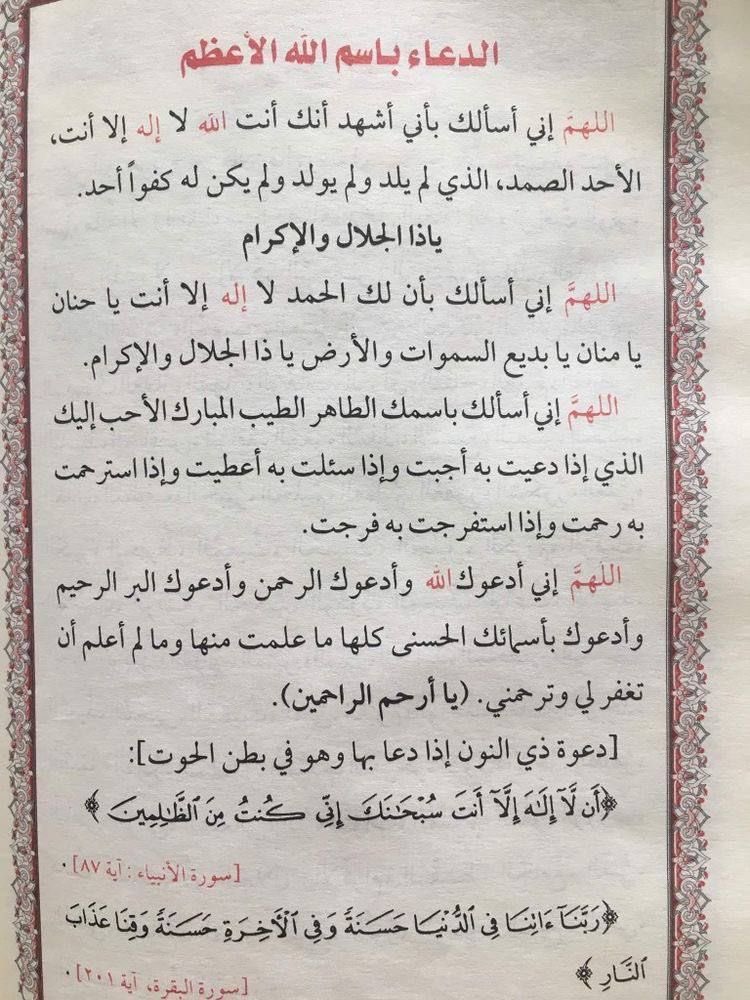 الدعاء باسم الله الأعظم
اللهمَّ إني أسألك بأني أشهد أنك أنت الله لا إله إلا أنت،
الأحد الصمد، الذي لم يلد ولم يولد ولم يكن له كفواً أحد.
ياذا الجلال والإكرام
اللهمَّ إني أسألك بأن لك الحمد لا إله إلا أنت يا حنان
يا منان يا بديع السموات والأرض يا ذا الجلال والإكرام.
اللهمَّ إني أسألك باسمك الطاهر الطيب المبارك الأحب إليك
الذي إذا دعيت به أجبت وإذا سئلت به أعطيت وإذا استرحمت
به رحمت وإذا استفرجت به فرجت.
اللهمَّ إني أدعوك الله وأدعوك الرحمن وأدعوك البر الرحيم
وأدعوك بأسمائك الحسنى كلها ما علمت منها وما لم أعلم أن
تغفر لي وترحمني. (يا أرحم الراحمين).
[دعوة ذي النون إذا دعا بها وهو في بطن الحوت]:
﴿أَن لَّآ إِلَٰهَ إِلَّآ أَنتَ سُبْحَٰنَكَ إِنِّي كُنتُ مِنَ ٱلظَّٰلِمِينَ﴾
[سورة الأنبياء : آية ٨٧].
﴿رَبَّنَآ ءَاتِنَا فِي ٱلدُّنْيَا حَسَنَةً وَفِي ٱلْأَخِرَةِ حَسَنَةً وَقِنَا عَذَابَ
ٱلنَّارِ﴾
[سورة البقرة، آية ٢٠١].